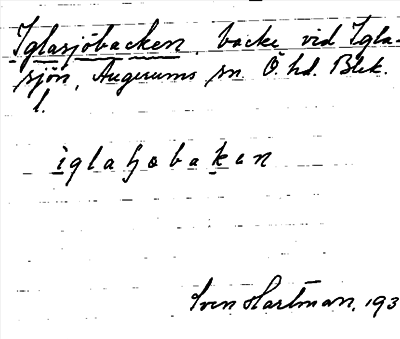 Iglasjöbacken, backe vid Igla-
sjön, Augerums sn. Ö. hd. Blek.
l.
iglaɧobakɘn
Sven Hartman, 193